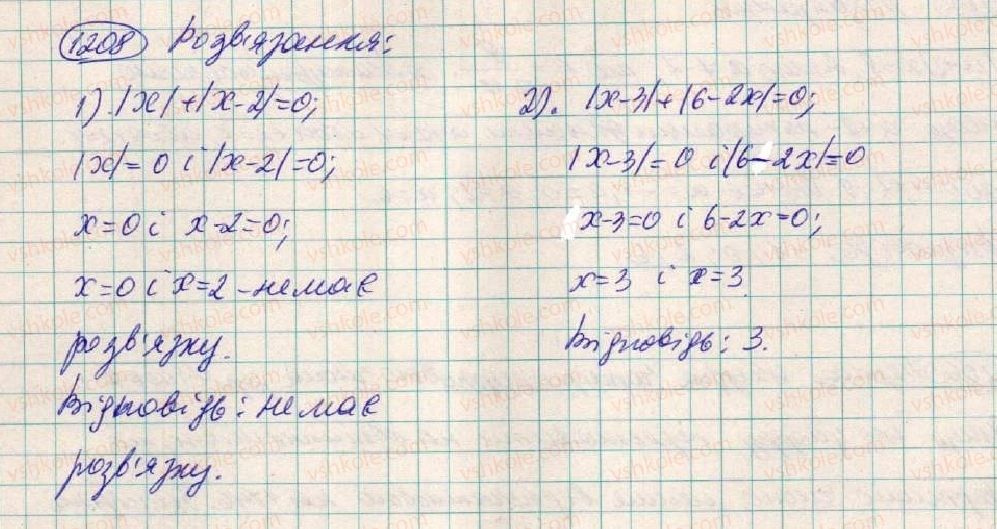 1208 Розв'язання:
1). |x|+|x-2|=0;
|x|=0 і |x-2|=0;
x=0 і x-2=0;
x=0 і x=2 - немає
розв'язку.
Відповідь: немає
розв'язку.
2). |x-3|+|6-2x|=0;
|x-3|=0 і |6-2x|=0
x-3=0 і 6-2x=0;
x=3 і x=3
Відповідь: 3.
vshkole.com